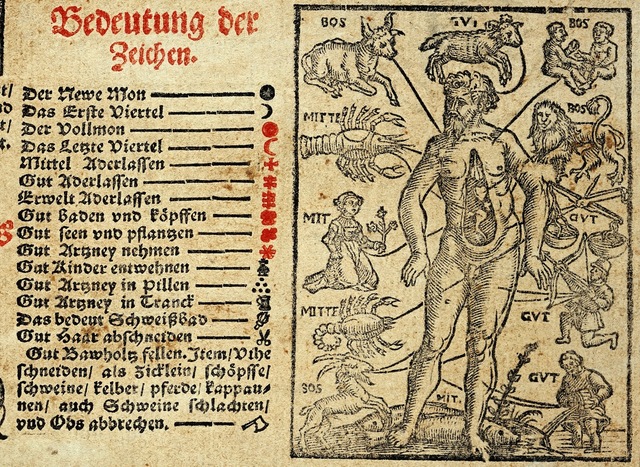 Bedeutung der
Zeichen.
Der Newe Mon
Das Erste Viertel
Der Vollmon
Das Letzte Viertel
Mittel Aderlassen
Gut Aderlassen
Erwelt Aderlassen
Gut Baden vnd köpffen
Gut seen vnd pflantzen
Gut Artzney nehmen
Gut Kinder entwehnen
Gut Artzney in Pillen
Gut Artzney in Tranck
Das bedeut Schweißbad
Gut Haar abschneiden
Gut Bawholtz fellen. Item/ Vihe
schneiden/ als Zicklein/ schöpsse/
schweine/ kelber/ pferde/ kappau-
nen/ auch Schweine schlachten/
vnd Obs abbrechen.
BOS
GVT
BOS
MITTE
BOS
MIT
GVT
MITTE
GVT
BOS
MIT.
GVT